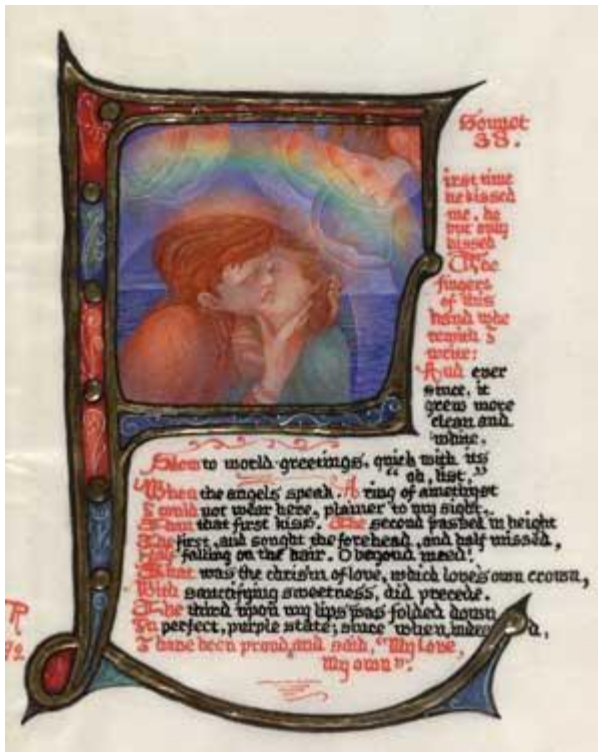 Sonnet
38.
First time
he kissed
me, he
but only
kissed
The
fingers
of this
hand whe
rewith I
write:
And ever
since, it
grew more
clean and
white.
Slow to world-greetings, quick with its
"oh, list,"
When the angels speak. A ring of amethyst
I could not wear here, plainer to my sight,
Than that first kiss. The second passed in height
The first, and sought the forehead, and half missed,
Half falling on the hair. O beyond meed!
That was the chrism of love, which love's own crown,
With sanctifying sweetness, did precede.
The third upon my lips was folded down
In perfect, purple state; since when, indeed,
I have been proud, and said, "My Love,
My own".